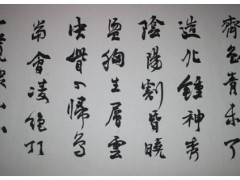 齊魯青未了
造化鍾神秀
陰陽割昏曉
盪胸生層雲
決眥入歸鳥
當會凌絕頂
一覽眾山小